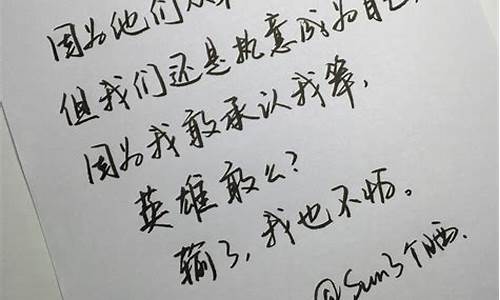 因为他们从
但我们还是执意成为自己，
因为我敢承认我笨，
英雄敢么？
输了，我也不怕。
@Sun3个